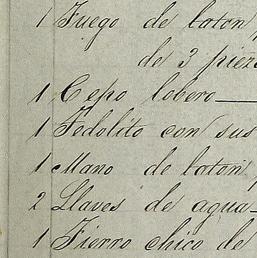 1 Juego de laton
de 3 piez
1 Cepo lobero
1 Fedolito con sus
1 Mano de laton
2 Llaves de agua
1 Fierro chico de